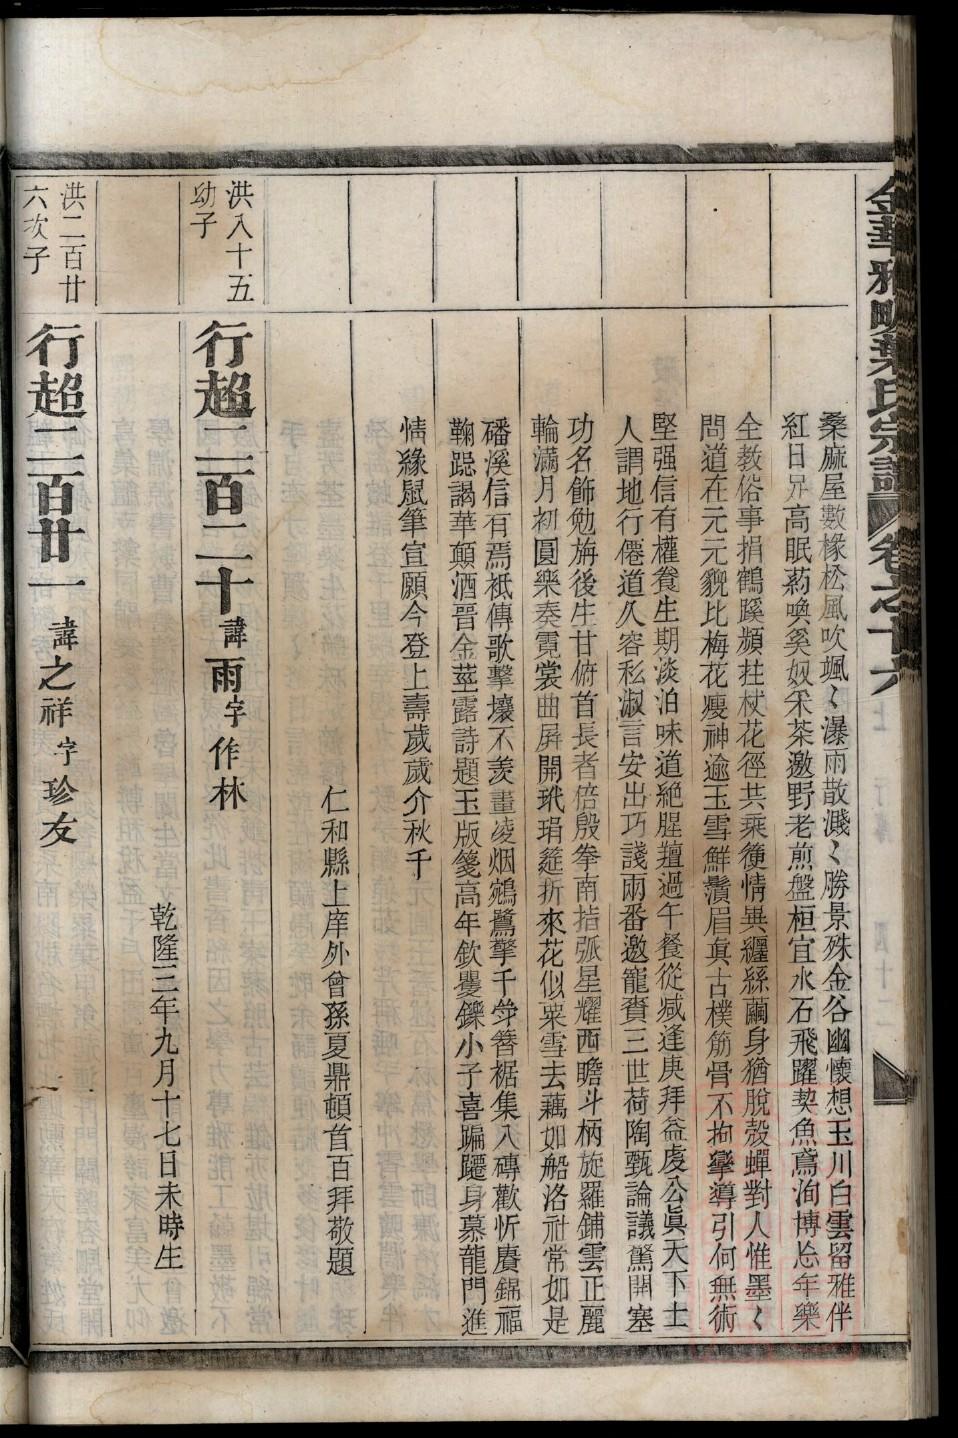 金華雅畈葉氏宗譜 卷之十六
桑麻屋數椽松風吹颯〻瀑雨散濺〻勝景殊金谷幽懷想玉川白雲留雅伴
紅日昇高眠葯喚奚奴采茶邀野老煎盤桓宜水石飛躍契魚鳶洵博忘年樂
全教俗事捐鶴蹊頻拄杖花徑共乘箯情異纏絲繭身猶脫殼蟬對人惟墨〻
問道在元元貌比梅花瘦神逾玉雪鮮鬚眉眞古樸筋骨不拘攣導引何無術
堅强信有權養生期淡泊味道絶腥羶過午餐從减逢庚拜益虔公眞天下士
人謂地行僊道久容私淑言安出巧諓兩番邀寵賚三世荷陶甄論議驚開塞
功名飾勉旃後生甘俯首長者倍殷拳南指弧星耀西瞻斗柄旋羅鋪雲正麗
輪滿月初圓樂奏霓裳曲屏開玳瑁筵折來花似粟雪去藕如船洛社常如是
磻溪信有焉衹傳歌擊壤不羡畫凌烟鵷鷺擎千第簪裾集八磚歡忻賡錦福
鞠跽謁華顛酒晉金莖露詩題玉版箋高年欽矍鑠小子喜蹁躚身慕龍門進
情緣鼠筆宣願今登上壽歲歲介秋千
仁和縣上庠外曾孫夏鼎頓首百拜敬題
洪八十五
幼子
行超二百二十 諱雨字作林
乾隆三年九月十七日未時生
洪二百廿
六次子
行超二百廿一 諱之祥字珍友